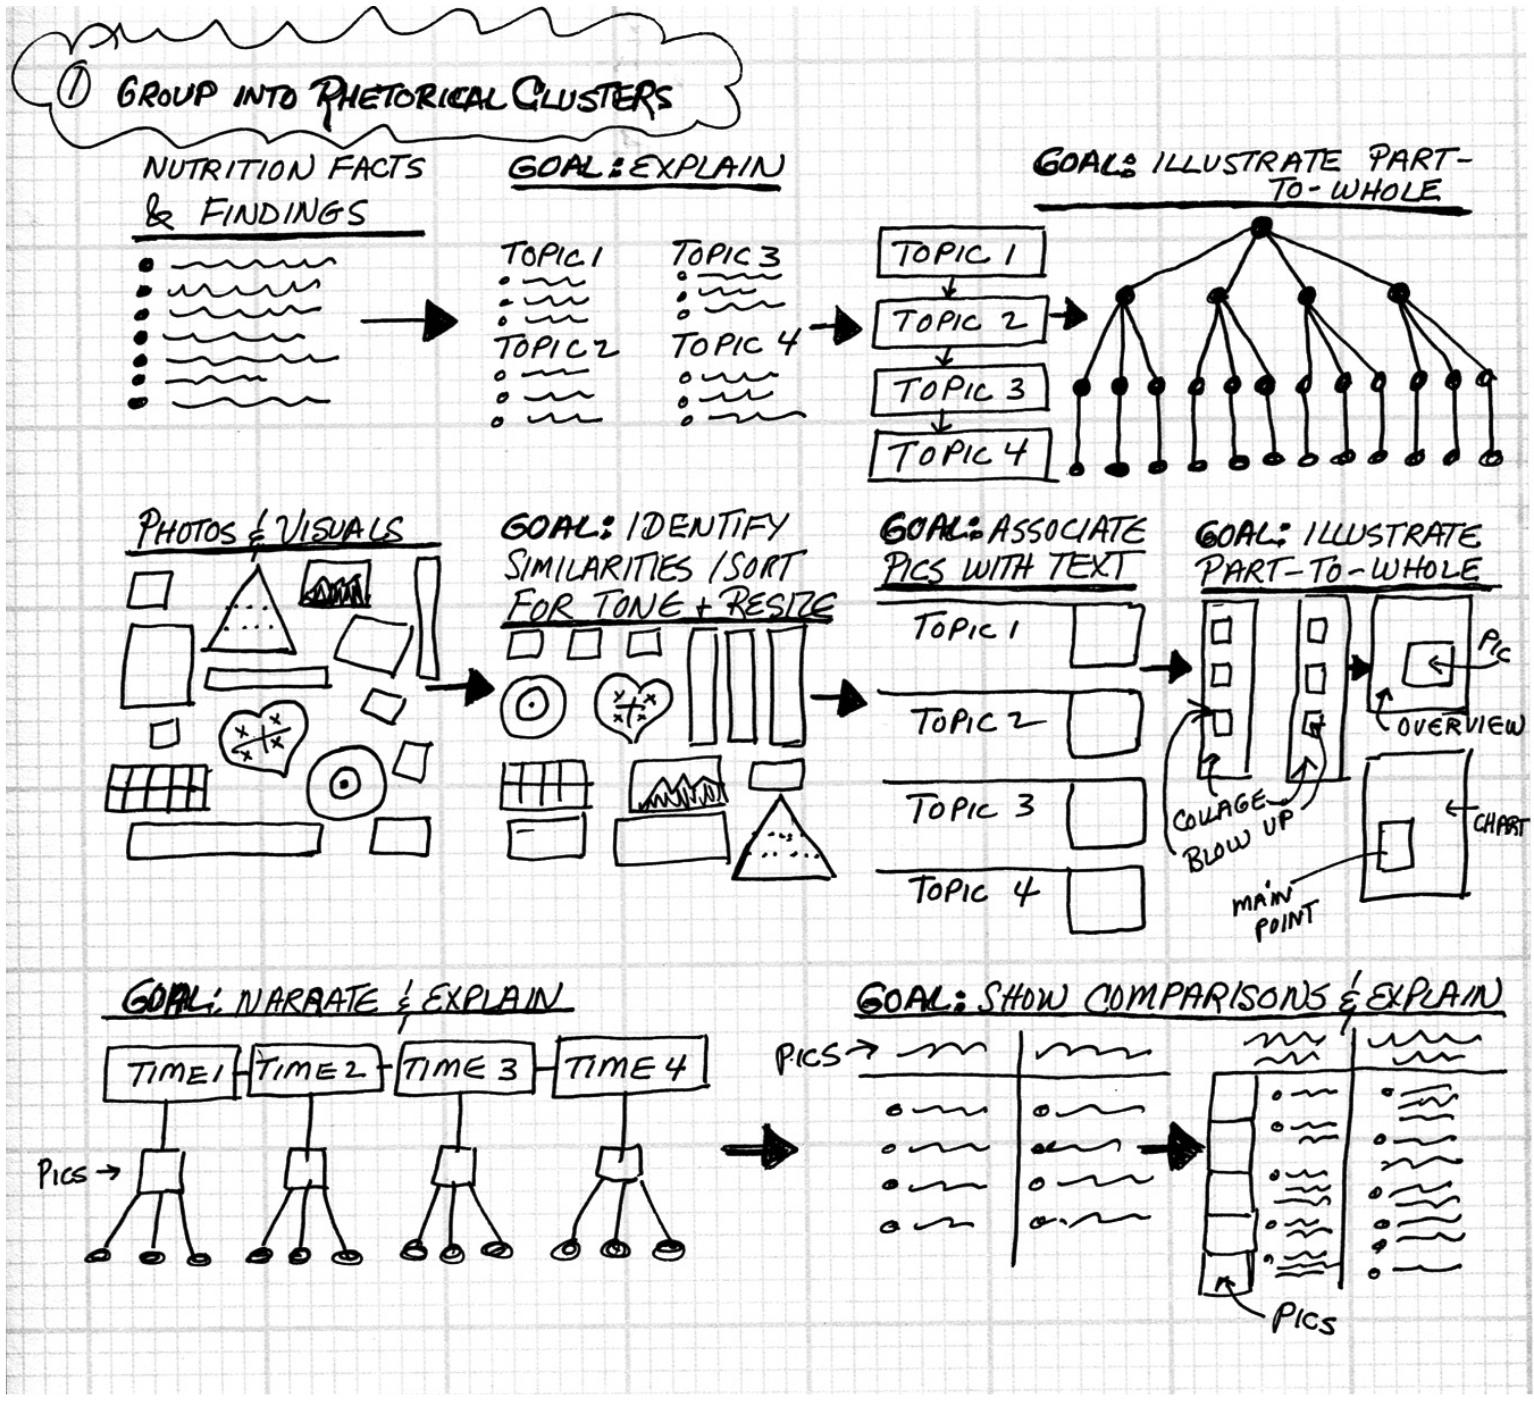 1 GROUP INTO RHETORICAL CLUSTERS
NUTRITION FACTS
& FINDINGS
GOAL: EXPLAIN
TOPIC 1
TOPIC 3
TOPIC 2
TOPIC 4
TOPIC 1
TOPIC 2
TOPIC 3
TOPIC 4
GOAL: ILLUSTRATE PART-
TO-WHOLE
PHOTOS & VISUALS
GOAL: IDENTIFY
SIMILARITIES / SORT
FOR TONE + RESIZE
GOAL: ASSOCIATE
PICS WITH TEXT
TOPIC 1
TOPIC 2
TOPIC 3
TOPIC 4
GOAL: ILLUSTRATE
PART-TO-WHOLE
PIC
OVERVIEW
COLLAGE
BLOW UP
CHART
MAIN
POINT
GOAL: NARRATE & EXPLAIN
TIME 1
TIME 2
TIME 3
TIME 4
PICS
GOAL: SHOW COMPARISONS & EXPLAIN
PICS
PICS